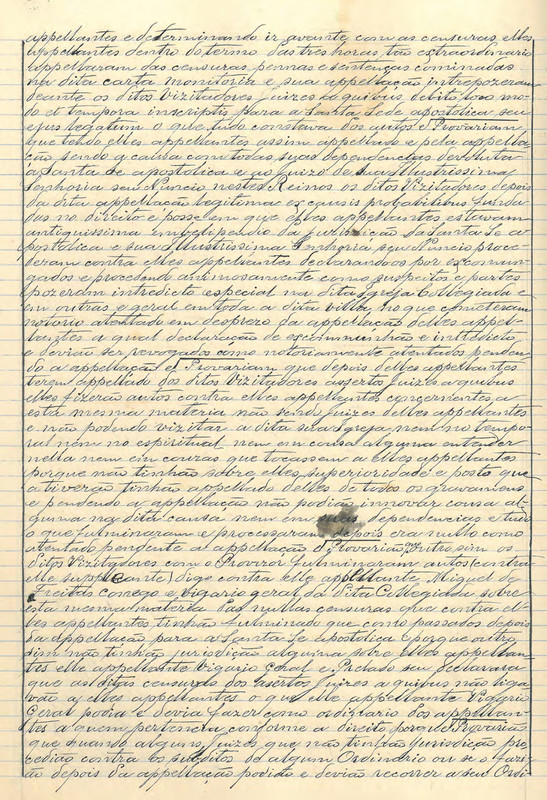 appellantes e determinando ir avante com as censuras, elles
appellantes dentro do termo das tres horas, tão extraordinario
appellaram das censuras, pennas e sentenças cominadas
na dita carta monitoria e sua appellação intrepozeram
deante os ditos Vizitadores juizes a quibus, debito loco mo-
do et tempora inscriptis para a Santa Sede apostolica seu
ejus legatum o que tudo constava dos autos e Provariam
que tendo elles appellantes assim appellado e pela appella-
ção sendo a causa com todas suas dependencias devoluta
a Santa Sé apostolica e ao juizo de sua Illustrissima
Senhoria seu Nuncio nestes Reinos os ditos Vizitadores depois
da dita appellação legitima ex causis probabilibus funda-
das no direito e posse em que elles appellantes estavam
antiquissima em vilipendio da jurisdição da Santa Sé a-
postolica e sua Illustrissima Senhoria seu Nuncio proce-
deram contra elles appellantes declarando-os por excomun-
gados e procedendo animosamente como suspeitos e partes
pozeram intredicto especial na dita Igreja Collegiada e
em outras, e geral em toda a dita villa, no que cometeram
notorio atentado em desprezo da appellação delles appel-
lantes a qual declaração de escommunhão e intredicto
e devião ser revogados como notoriamente atentados penden-
do a appellação e Provariam que depois delles appellantes
terem appellado dos ditos Vizitadores assertos juizes a quibus
elles fizerão autos contra elles appellantes concernentes a
esta mesma materia não sendo juizes delles appellantes
e não podendo vizitar a dita sua Igreja, nem no tempo-
ral nem no espiritual nem em cousa alguma entender
nella nem em couzas que tocassem a elles appellantes
porque não tinhão sobre elles superioridade e posto que
a tiverão tinhão appellado delles de todos os gravames
e pendendo a appellação não podião innovar cousa al-
guma na dita causa nem em suas dependencias e tudo
o que fulminaram e processaram depois era nullo como
atentado pendente a appellação e Provariam Outro sim os
ditos Vizitadores com o Provizor fulminaram autos (contra
elle supplicante) digo contra elle appellante, Miguel de
Freitas conego e vigario geral da dita Collegiada sobre
esta mesma materia das nullas censuras que contra el-
les appellantes tinhão fulminado que como passados depois
da appellação para a Santa Sé apostolica e porque outro
sim não tinhão jurisdição alguma sobre elles appellan-
tes elle appellante Vigario Geral e Prelado seu declarara
que as ditas censuras dos asertos juizes a quibus não liga-
vão a elles appellantes o que elle appellante Vigario
Geral podia e devia fazer como ordinario dos appellan-
tes a quem pertencia conforme a direito porque Provarião
que quando alguns juizes que não tinhão jurisdição pro-
cedião contra os subditos de algum Ordinario ou se o fazi-
ão depois da appellação podião e devião recorrer a seu Ordi-